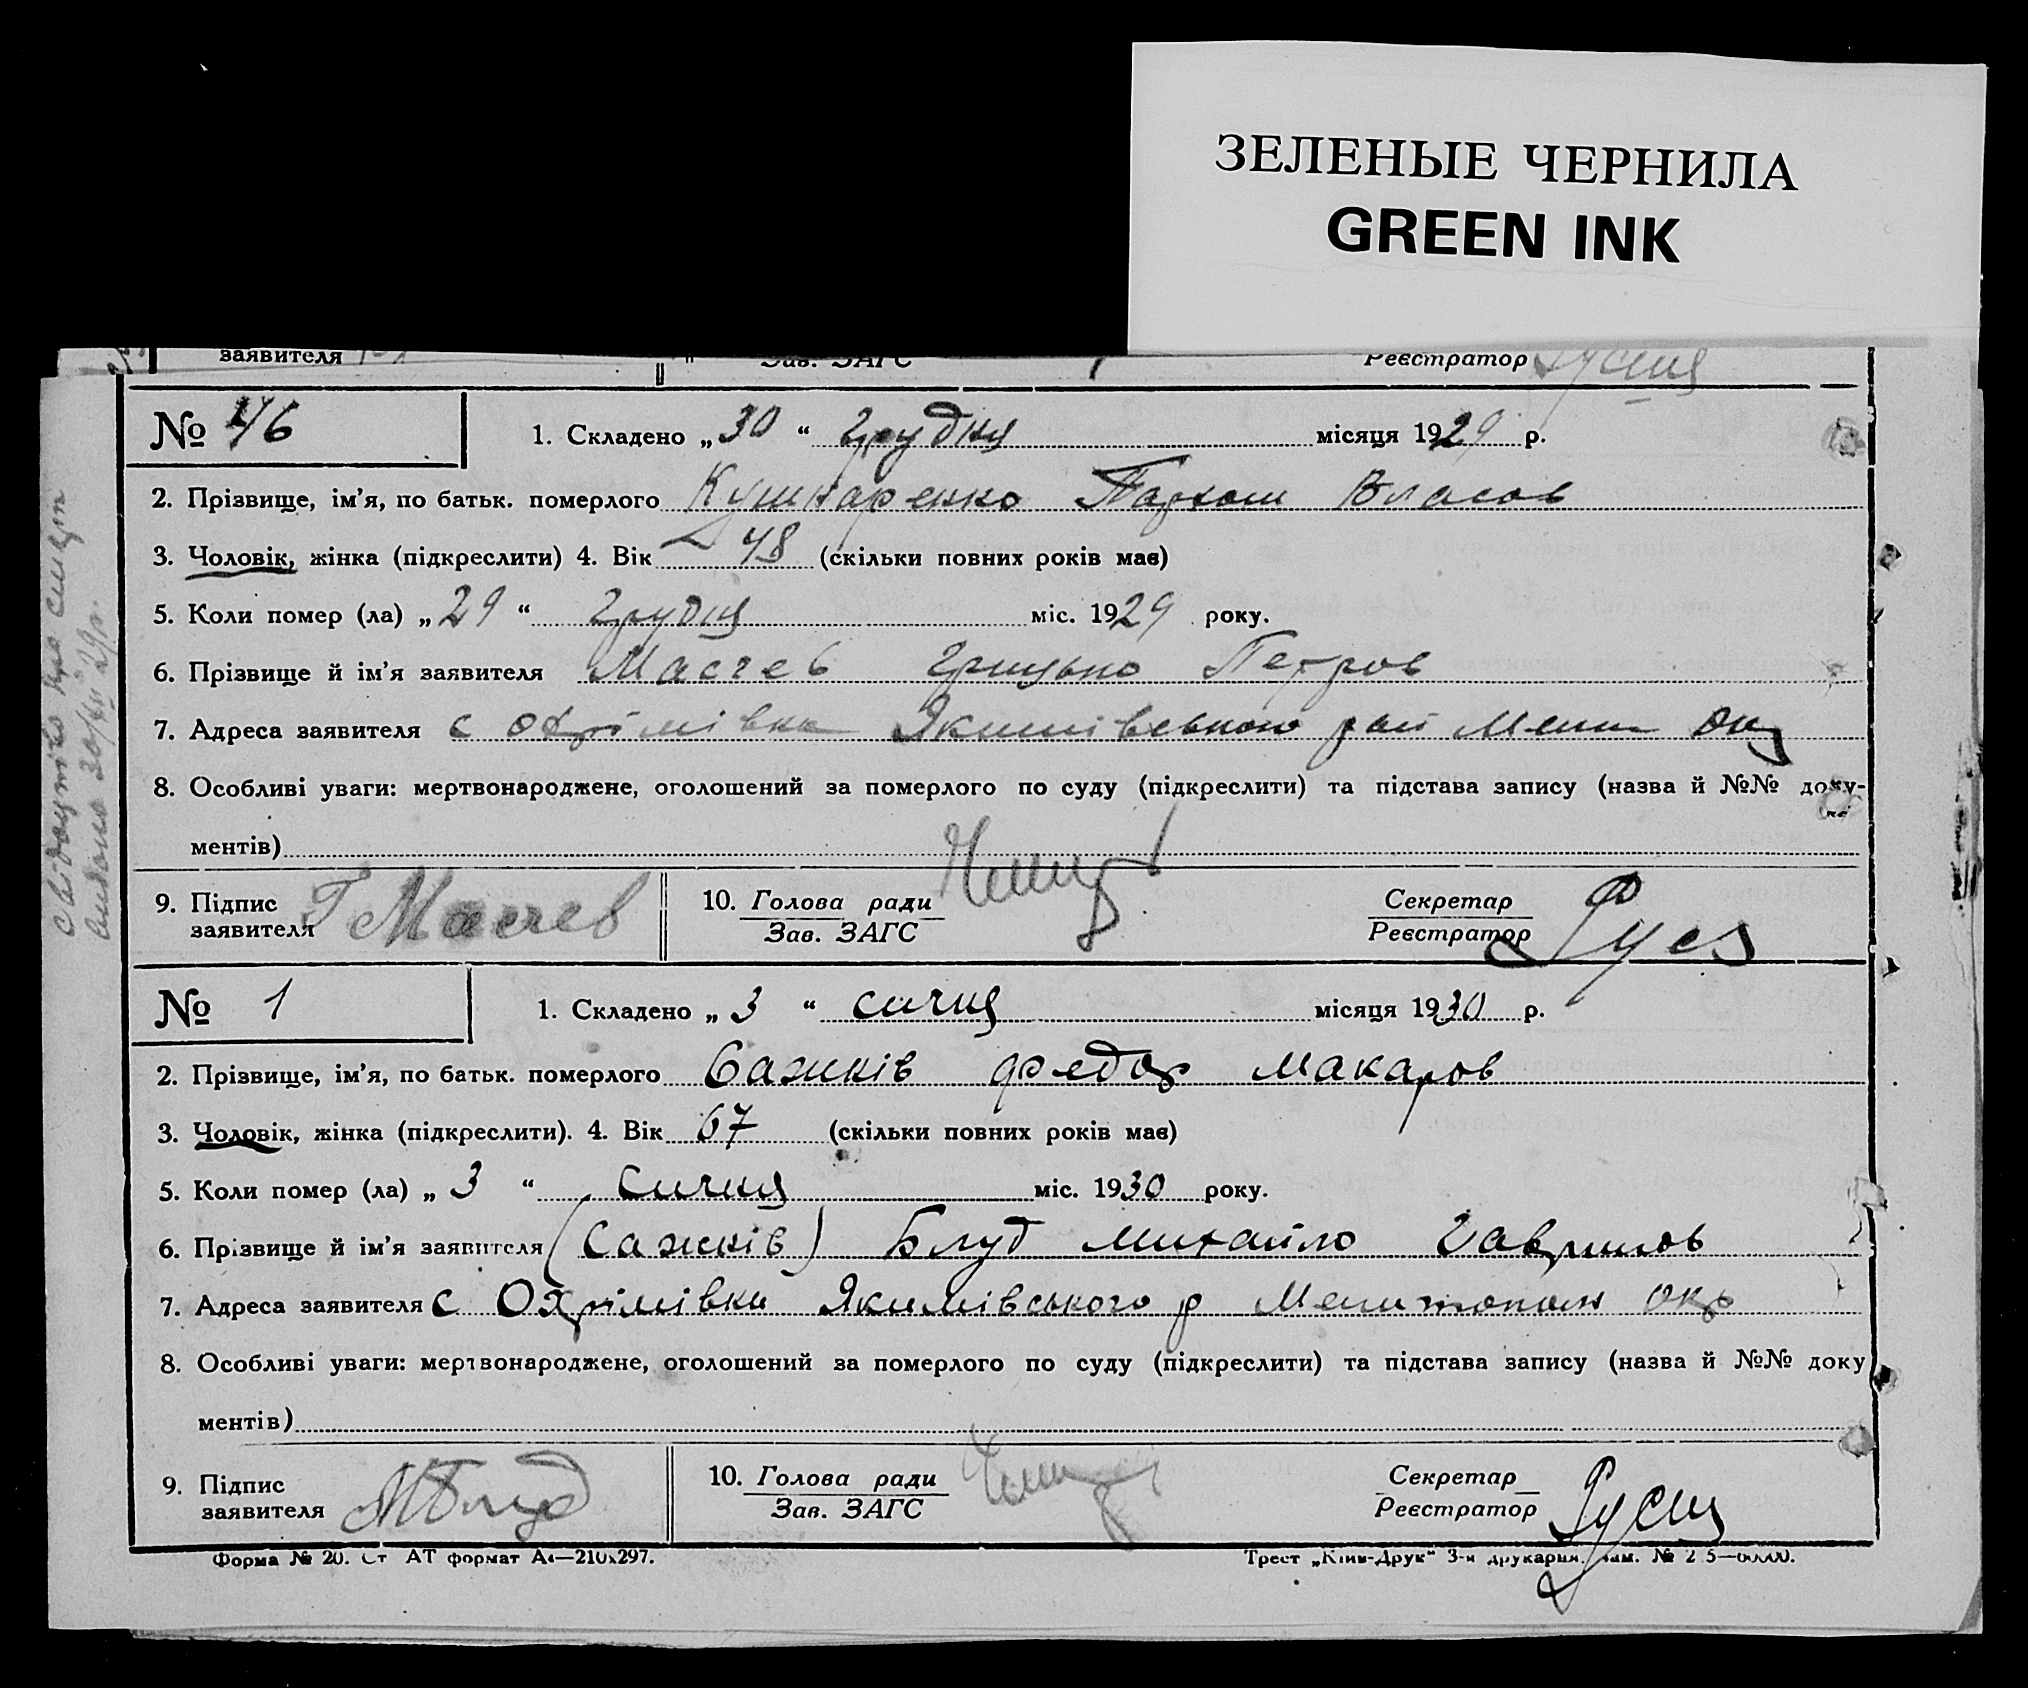 ЗЕЛЕНЫЕ ЧЕРНИЛА
GREEN INK
заявителя Зав. ЗАГС Реєстратор
№ 46 1. Складено „30“ грудня місяця 1929 р.
2. Прізвище, ім’я, по батьк. померлого Кушнаренко Пархом Власов
3. Чоловік, жінка (підкреслити) 4. Вік 48 (скільки повних років має)
5. Коли помер (ла) „29“ грудня міс. 1929 року.
6. Прізвище й ім’я заявителя Масчев Грицько Петров
7. Адреса заявителя с Охрімівка Якимівського рай Мелит окр
8. Особливі уваги: мертвонароджене, оголошений за померлого по суду (підкреслити) та підстава запису (назва й №№ доку-
ментів)
9. Підпис заявителя Г Масчев 10. Голова ради Зав. ЗАГС Секретар Реєстратор
№ 1 1. Складено „3“ сичня місяця 1930 р.
2. Прізвище, ім’я, по батьк. померлого Сажків Федор Макаров
3. Чоловік, жінка (підкреслити). 4. Вік 67 (скільки повних років має)
5. Коли помер (ла) „3“ сичня міс. 1930 року.
6. Прізвище й ім’я заявителя (Сажків) Блуд Михайло Гаврилов
7. Адреса заявителя с Охрімівки Якимівського р Мелитопольк окр
8. Особливі уваги: мертвонароджене, оголошений за померлого по суду (підкреслити) та підстава запису (назва й №№ доку
ментів)
9. Підпис заявителя МБлуд 10. Голова ради Зав. ЗАГС Секретар Реєстратор
Форма № 20. Ст АТ формат А4—210х297. Трест „Київ-Друк“ 3-я друкарня.